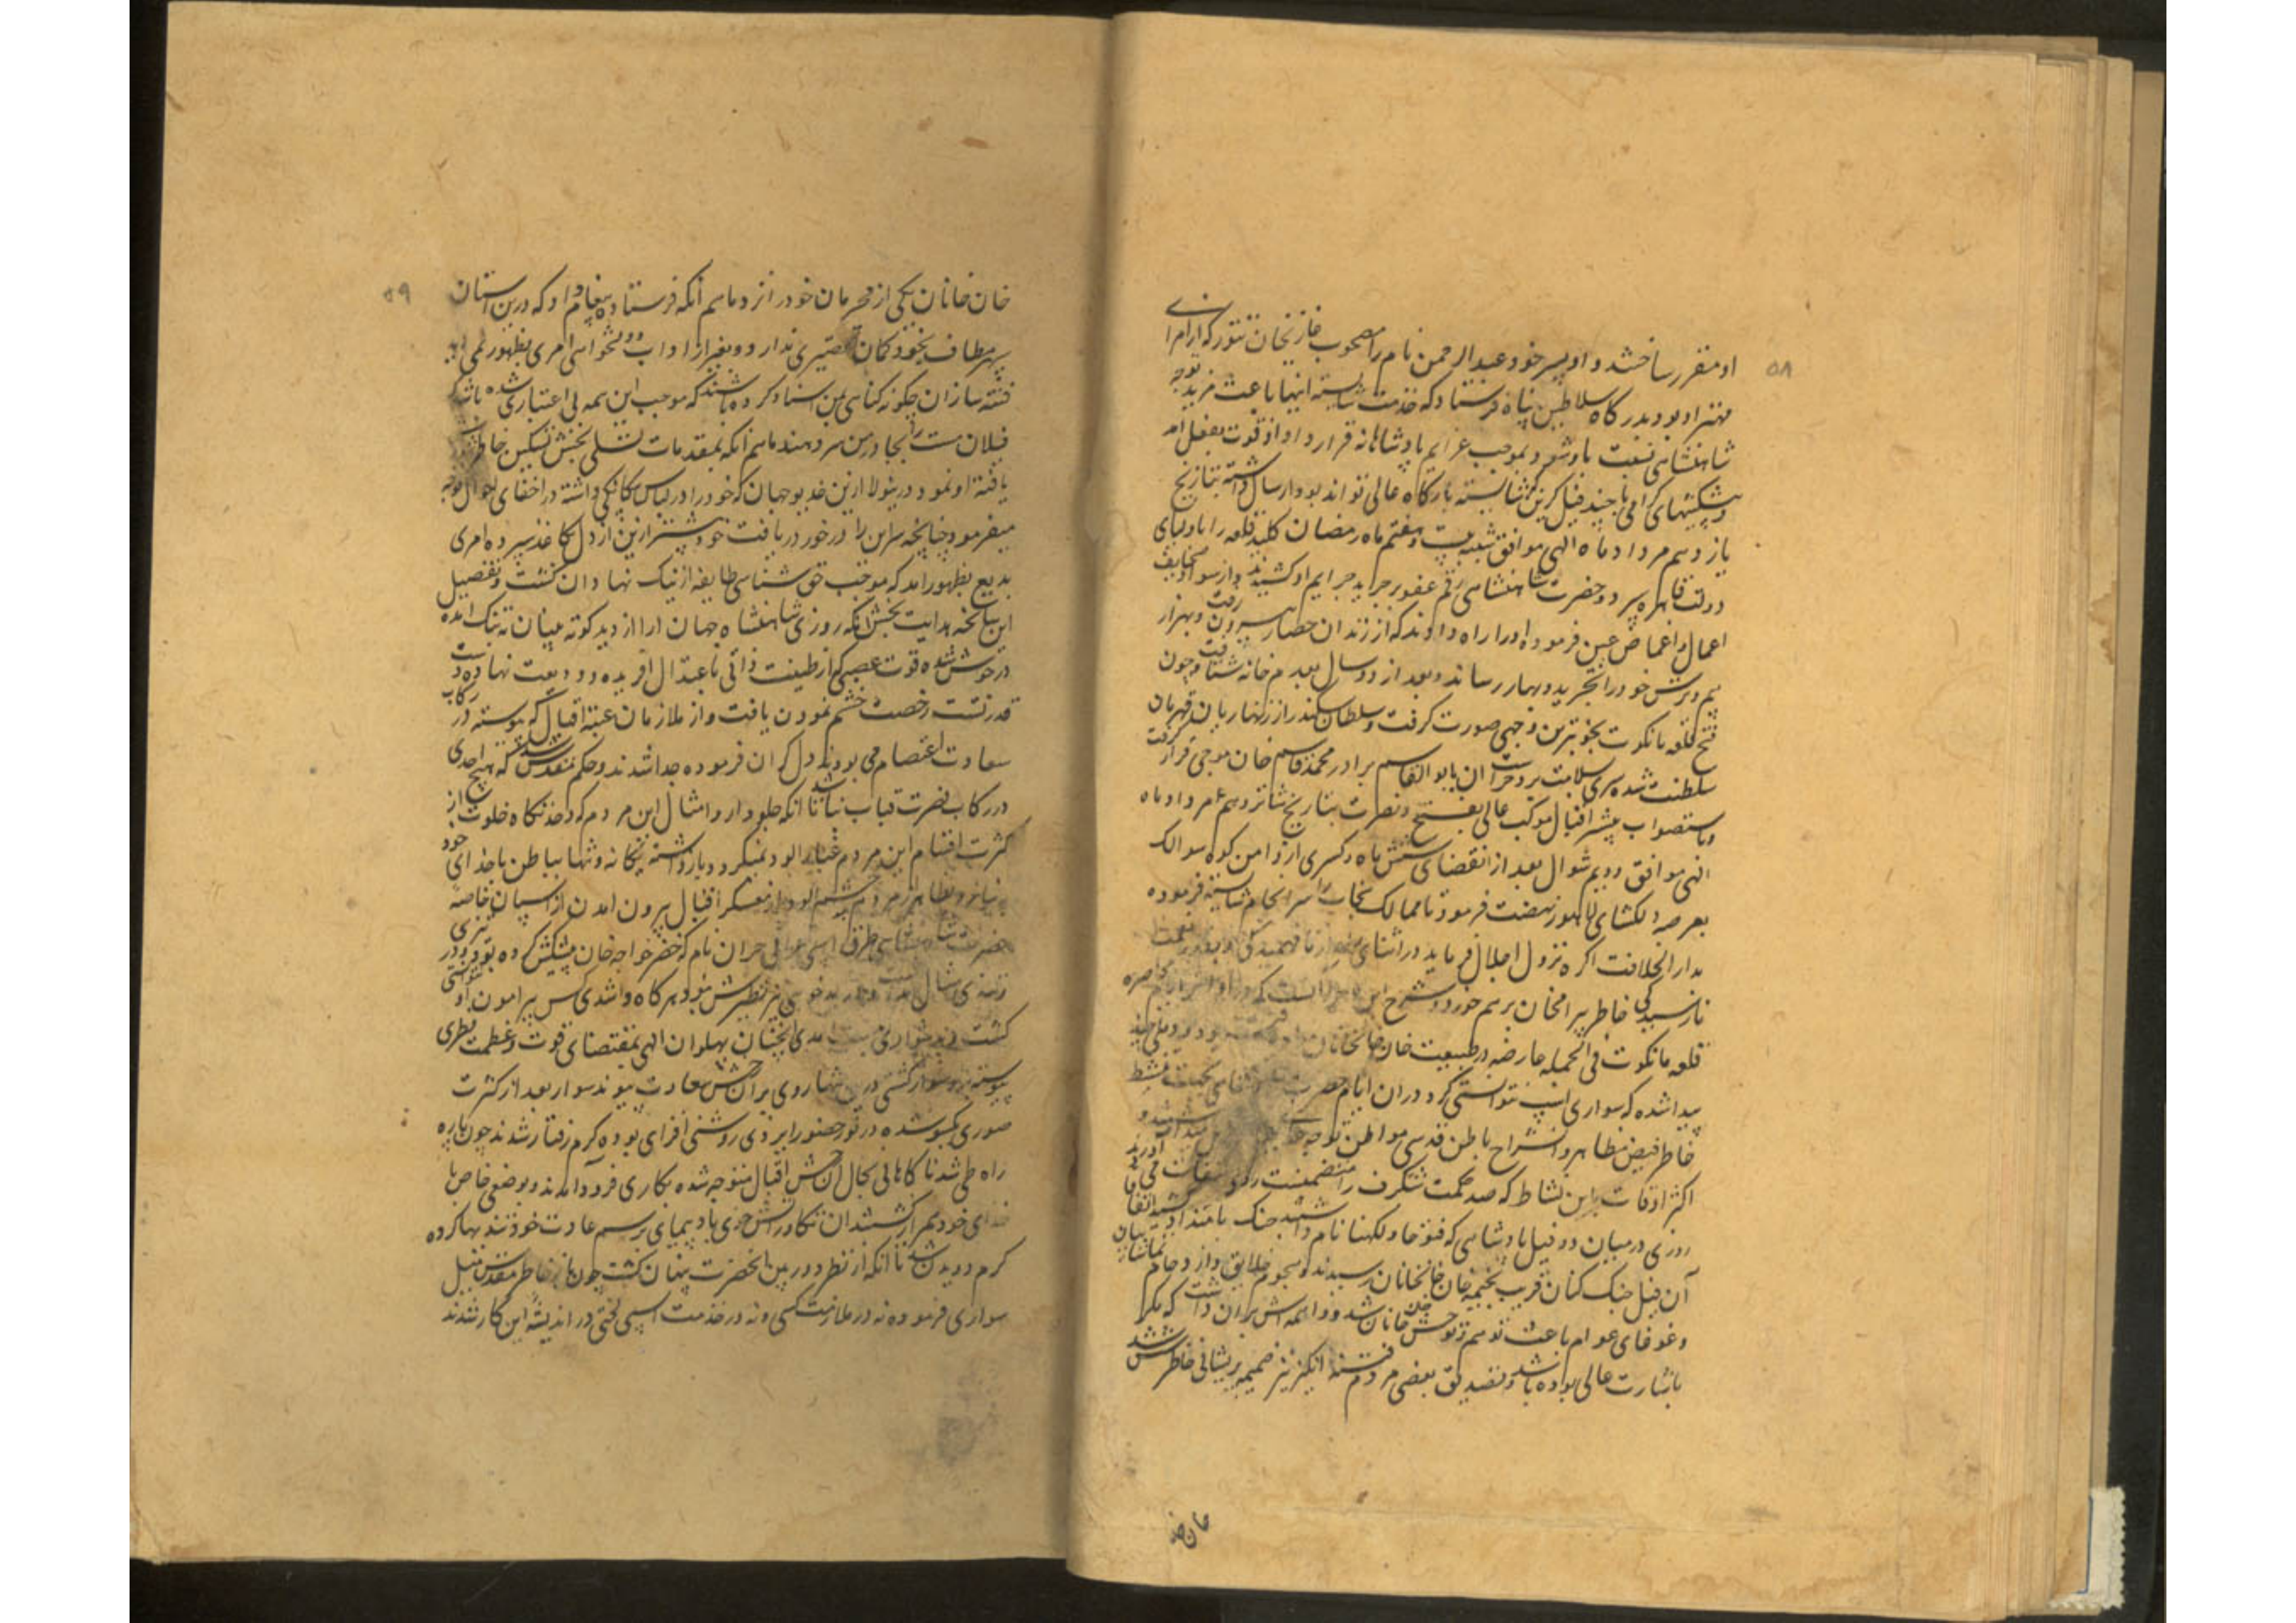 ۵۸
او مقرر ساختند و او پسر خود عبدالرحمن نام را مصحوب غازیخان تنور که از امرای
مهتر او بود بدرگاه سلاطین پناه فرستاد که خدمت شایسته اینها باعث مزید توجه
شاهنشاهی نسبت باو شود بموجب عزایم پادشاهانه قرارداد او از قوت بفعل امد
و پیشکشهای گرامی با چند فیل گزین که شایسته بارگاه عالی تواند بود ارسال داشته بتاریخ
یازدهم مرداد ماه الهی موافق شنبه بیست و هفتم ماه رمضان کلید قلعه را باولیای
دولت قاهره سپرد و حضرت شاهنشاهی رقم عفو بر جراید جرایم او کشیدند و از سواد صحایف
اعمال و اغماض عین فرموده او را راه دادند که از زندان حصار بیرون رفت و بهزار
بیم و ترس خود را بخرید و بهار رساند و بعد از دو سال بعدم خانه شتافت و چون
فتح قلعه مانکوت بخوبترین وجهی صورت گرفت و سلطان سکندر از زنهاریان قهرمان
سلطنت شده سری بسلامت برد حراست ان بابوالقاسم برادر محمد قاسم خان موجی قرار گرفت
و باستصواب مبشر اقبال موکب عالی بفتح و نصرت بتاریخ شانزدهم امرداد ماه
الهی موافق دویم شوال بعد از انقضای شش ماه و کسری از دامن کوه سوالک
بعرصه دلکشای لاهور نهضت فرمود تا ممالک پنجاب را سرانجام شایسته فرموده
بدارالخلافت اکره نزول اجلال فرماید در اثنای از نا فهمیدگی و بغور
نارسیدگی خاطر بیرامخان برهم خورد و شرح این انست که در اواخر ایام محاصره
قلعه مانکوت فی الجمله عارضه در طبیعت خان خانان
پیدا شده که سواری اسپ نتوانستی کرد دران ایام حضرت شاهنشاهی بجهت نشط
خاطر فیض مظاهر و انشراح باطن قدسی مواطن توجه
اکثر اوقات باین نشاط که صد حکمت شکرف را متضمنست
روزی در میان دو فیل پادشاهی که فتوحا و لکهنا نام داشتند جنک با متداد کشید اتفاقا
آن فیل جنک کنان قریب بخیمه خان خانان رسیدند و هجوم خلایق و ازدحام تماشائیان
و غوغای عوام باعث توهم و توحش خان خانان شد و واهمه اش بران داشت که مگر
باشارت عالی بوده باشد و تصدیق بعضی مردم فتنه انگیز نیز ضمیمه پریشانی خاطرش شد
خان خا
۵۹
خان خانان یکی از محرمان خود را نزد ماهم انکه فرستاده پیغام داد که درین استان
سپهر مطاف بخود کمان تقصیری ندارد و بغیر از اداب دولتخواهی امری بظهور نمی
فتنه سازان چگونه گناهی بمن اسناد کرده باشند که موجب این همه بی اعتباری شده باشد که
فیلان مست را بجا در من سر دهند ماهم انکه بمقدمات تسلی بخش تسکین خاطر
یافته او نمود درینولا ازین خدیو جهان که خود را در لباس بیگانگی داشته در اخفای احوال توجه
میفرمود چنانچه سر این را در خور دریافت خود پیشتر ازین از دل بکاغذ سپرده امری
بدیع بظهور امد که موجب حق شناسی طایفه از نیک نهادان کشت و تفصیل
این سانحه هدایت بخش انکه روزی شاهنشاه جهان ارا از دید کوته بینان به تنک امده
در جوش شده قوت غصبی که از طینت ذاتی باعتدال افریده و ودیعت نهاده دست
قدر تست رخصت خشم نمودن یافت و از ملازمان عتبه اقبال که پیوسته در رکاب
سعادت اعتصام می بودند دل گران فرموده جدا شدند و حکم مقدس شد که هیچ احدی
در رکاب نصرت قباب نباشد تا انکه جلودار و امثال این مردم که در خدمتکاه خلوت از
کثرت اقسام این مردم غبارالود نمیگردد باز داشته یکانه و تنها بباطن با خدای خود
نیاز و بظاهر از مردم خشم الود از معسکر اقبال بیرون امدن از اسپان خاصه
حضرت شاهنشاهی حیران نام که خضر خواجه خان پیشکش کرده بود و در تیزی
و تندی مثال نداشت و در بدخوئی نیز نظیرش نبود هر کاه وا شدی کس پیرامون او نتوانستی
گشت و بدشواری بدست امدی انچنان پهلوان الهی بمقتضای قوت و عظمت فطری
پیوسته برو سوار گشتی درین تنها روی بران رخش سعادت پیوند سوار بعد از کثرت
صوری یکسو شده در نور حضور ایزدی روشنی افزای بوده گرم رفتار شدند چون پاره
راه طی شد ناگاه بحال ان رخش اقبال متوجه شده بکاری فرود آمدند و بوضعی خاص با
خدای خود همراز گشتند ان تکاور آتش خوی باد پیمای برسم عادت خود تند بها کرده
گرم دویدن شد تا انکه از نظر دور بین انحضرت پنهان گشت چون باز خاطر مقدس میل
سواری فرموده نه در ملازمت کسی و نه در خدمت اسپی لختی در اندیشه این کار شدند